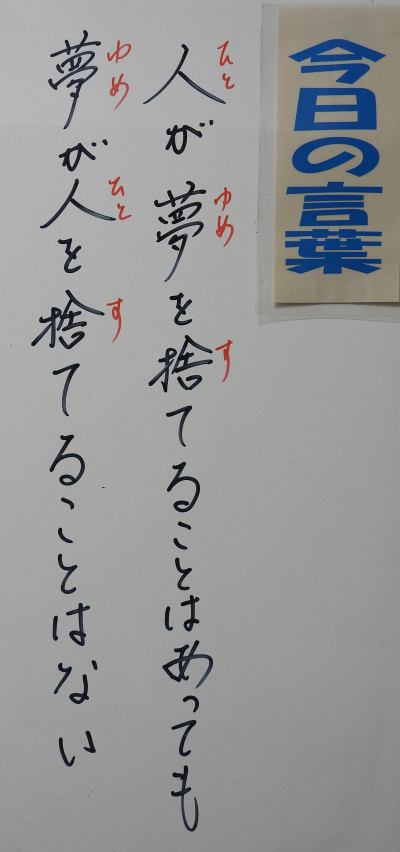 今日の言葉
人が夢を捨てることはあっても
ひと ゆめ す
夢が人を捨てることはない
ゆめ ひと す